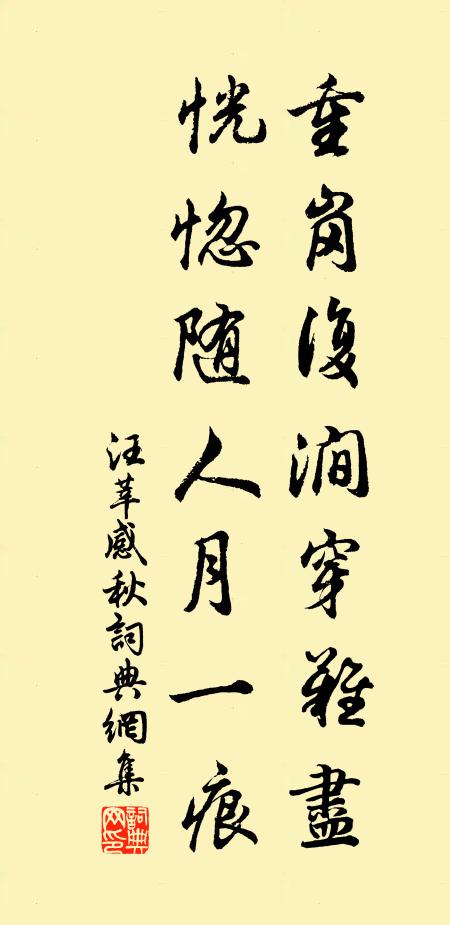 重崗復澗穿難盡
恍惚随人月一痕
汪莘感秋詞典網集
詞典網印